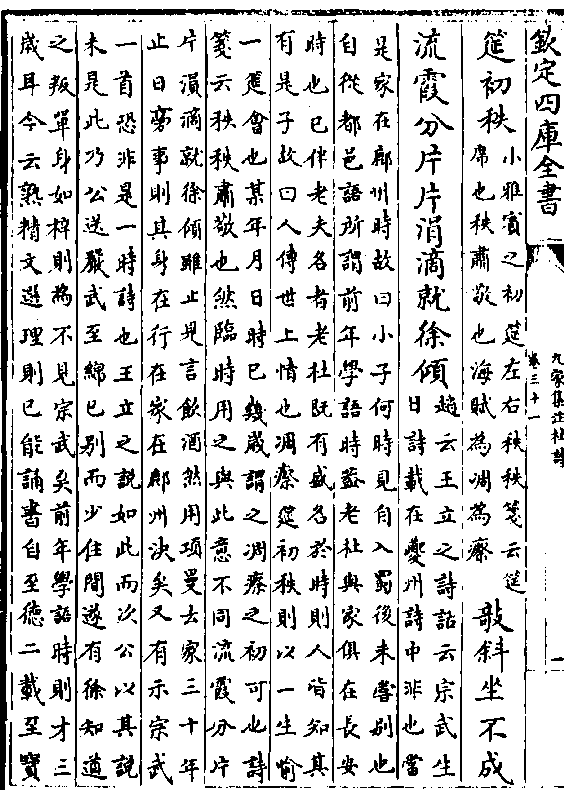 欽定四庫全書
九家集注杜詩
卷三十一
一
筵初秩
小雅賓之初筵左右秩秩箋云筵
席也秩肅敬也海賦為凋為瘵
敧斜坐不成
流霞分片片涓滴就徐傾
趙云王立之詩話云宗武生
日詩載在夔州詩中非也當
是家在鄜州時故曰小子何時見自入蜀後未嘗別也
自從都邑語所謂前年學語時蓋老杜與家俱在長安
時也已伴老夫名者老杜既有盛名於時則人皆知其
有是子故曰人傳世上情也凋瘵筵初秩則以一生愉
一筵會也某年月日時已幾歲謂之凋瘵之初可也詩
箋云秩秩肅敬也然臨時用之與此意不同流霞分片
片涓滴就徐傾雖止見言飲酒然用項曼去家三十年
止日旁事則其身在行在家在鄜州決矣又有示宗武
一首恐非是一時詩也王立之說如此而次公以其說
未是此乃公送嚴武至綿已別而少住間遂有徐知道
之叛單身如梓則為不見宗武矣前年學語時則才三
歲耳今云熟精文選理則已能誦書自至德二載至寶